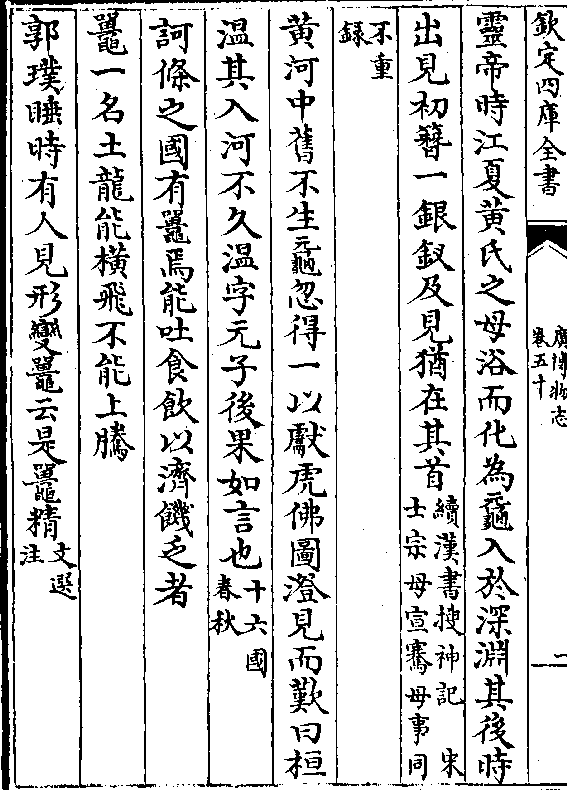 欽定四庫全書
廣博物志
卷五十
一
靈帝時江夏黄氏之母浴而化為黿入於深淵其後時
出見初簪一銀釵及見猶在其首續漢書搜神記 宋
士宗母宣騫母事同
不重
録
黄河中舊不生黿忽得一以獻虎佛圖澄見而歎曰桓
温其入河不久温字元子後果如言也十六國
春秋
訶條之國有鼉焉能吐食飲以濟饑乏者
鼉一名土龍能横飛不能上騰
郭璞睡時有人見形變鼉云是鼉精文選
注